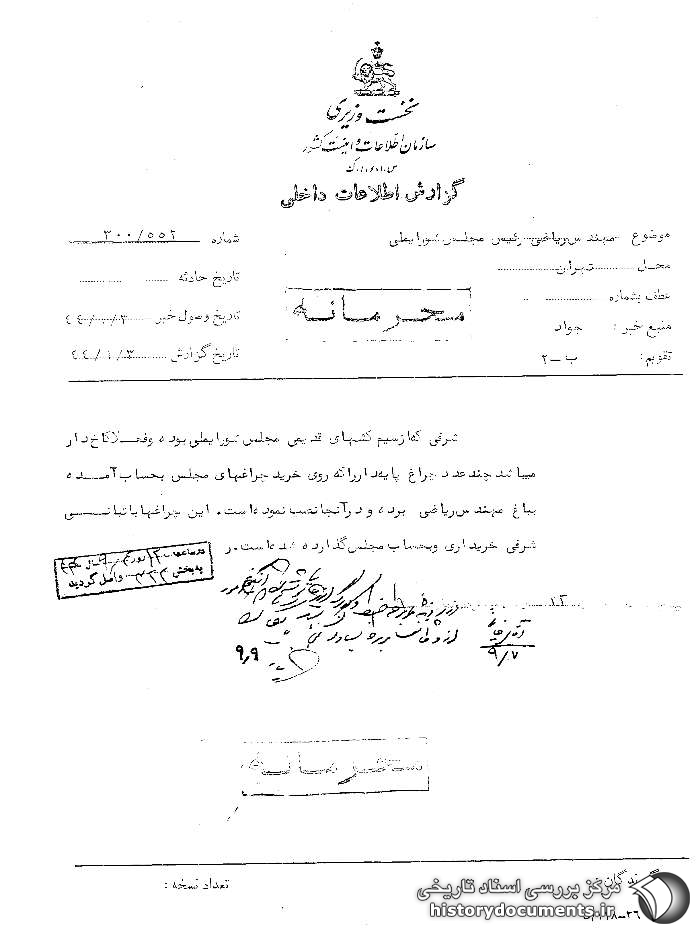 نخست وزیری
سازمان اطلاعات و امنیت کشور
س.ا.و.ا.ک
گزارش اطلاعات داخلی
موضوع مهندس ریاضی رئیس مجلس شورایملی
محل تهران
عطف بشماره
منبع خبر: جواد
تقویم: ب-۲
شماره ۳۰۰/۵۵۲
تاریخ حادثه
تاریخ وصول خبر
تاریخ گزارش ٤٤/۱/۳
محرمانه
شرفی که از سیم کشهای قدیمی مجلس شورایملی بوده و فعلا کاخ دار
میباشد چند عدد چراغ پایه دار را که روی خرید چراغهای مجلس بحساب آمده
بباغ مهندس ریاضی برده و در آنجا نصب نموده است. این چراغها با تبانی
شرفی خریداری و بحساب مجلس گذارده شده است.
به بخش ۳۲۲ واصل گردید
۹/۷
۹٫۹
محرمانه
گیرندگان خبر
تعداد نسخه:
مرکز بررسی اسناد تاریخی
historydocuments.ir